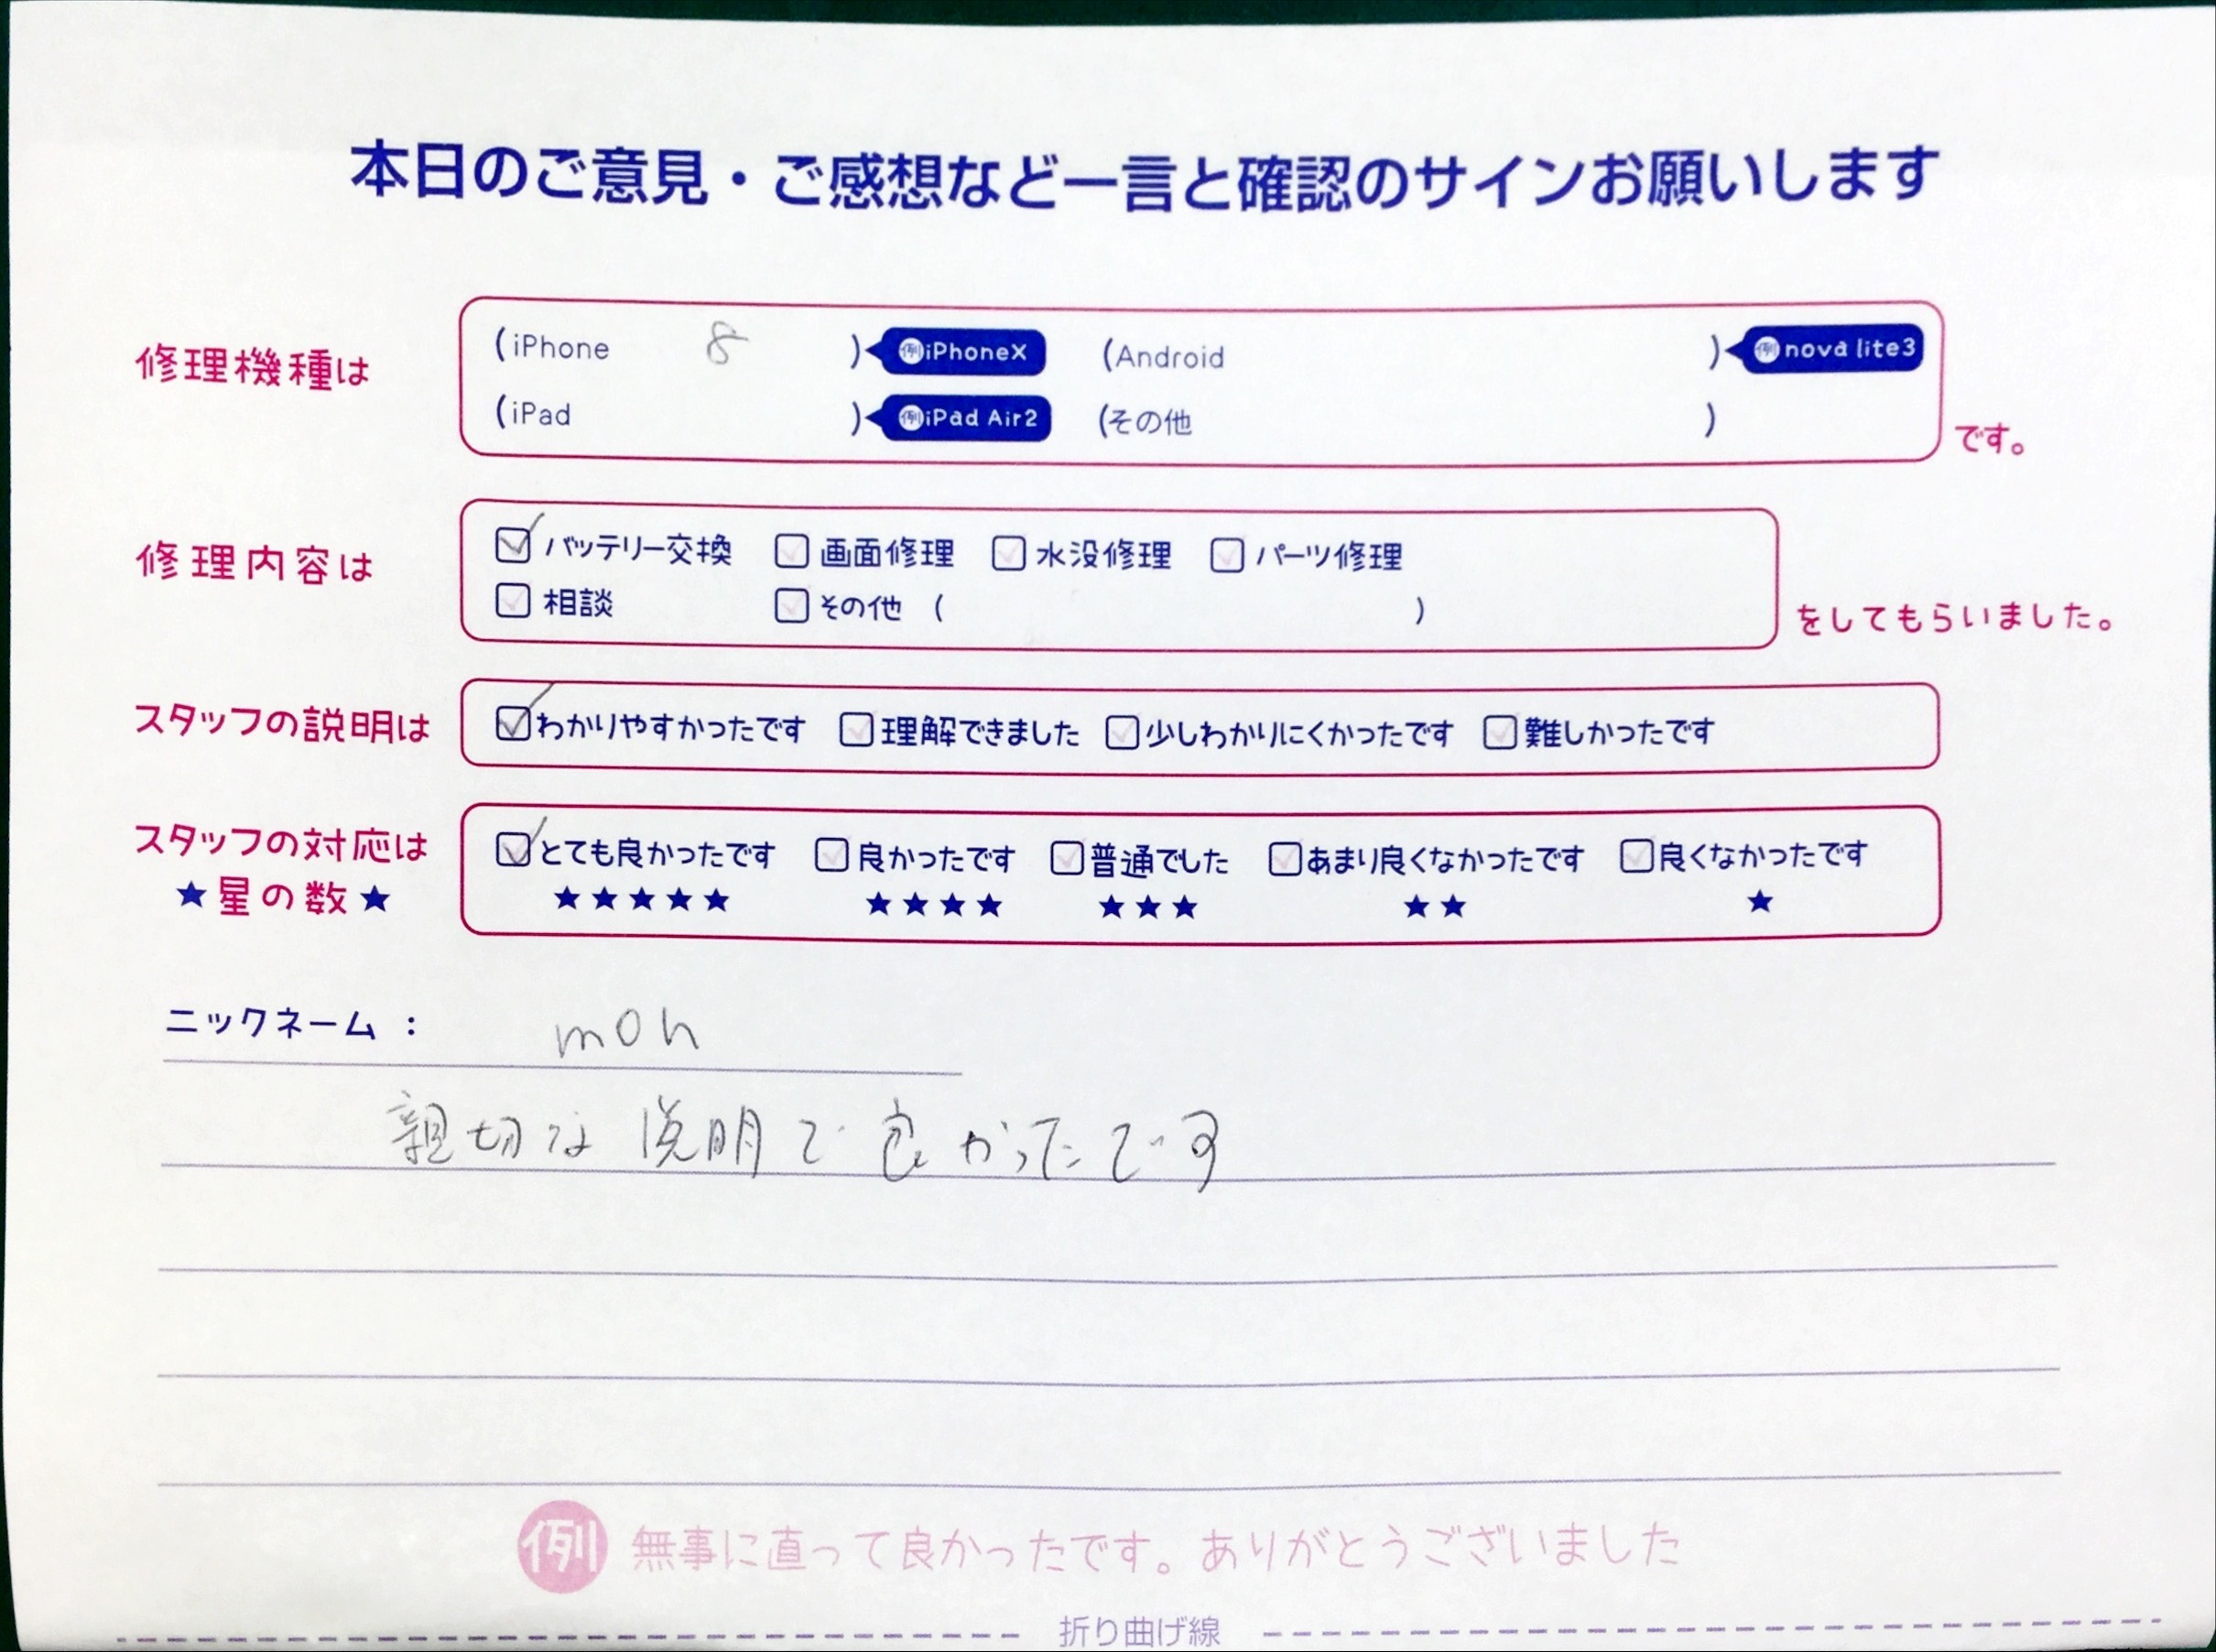 本日のご意見・ご感想など一言と確認のサインお願いします
修理機種は
(iPhone 8 ) 例iPhoneX (Android ) 例nova lite3
(iPad ) 例iPad Air2 (その他 )
です。
修理内容は
☑バッテリー交換 □画面修理 □水没修理 □パーツ修理
□相談 □その他 ( )
をしてもらいました。
スタッフの説明は
☑わかりやすかったです □理解できました □少しわかりにくかったです □難しかったです
スタッフの対応は
★星の数★
☑とても良かったです □良かったです □普通でした □あまり良くなかったです □良くなかったです
★★★★★ ★★★★ ★★★ ★★ ★
ニックネーム : mon
親切な説明で良かったです
例 無事に直って良かったです。ありがとうございました
折り曲げ線